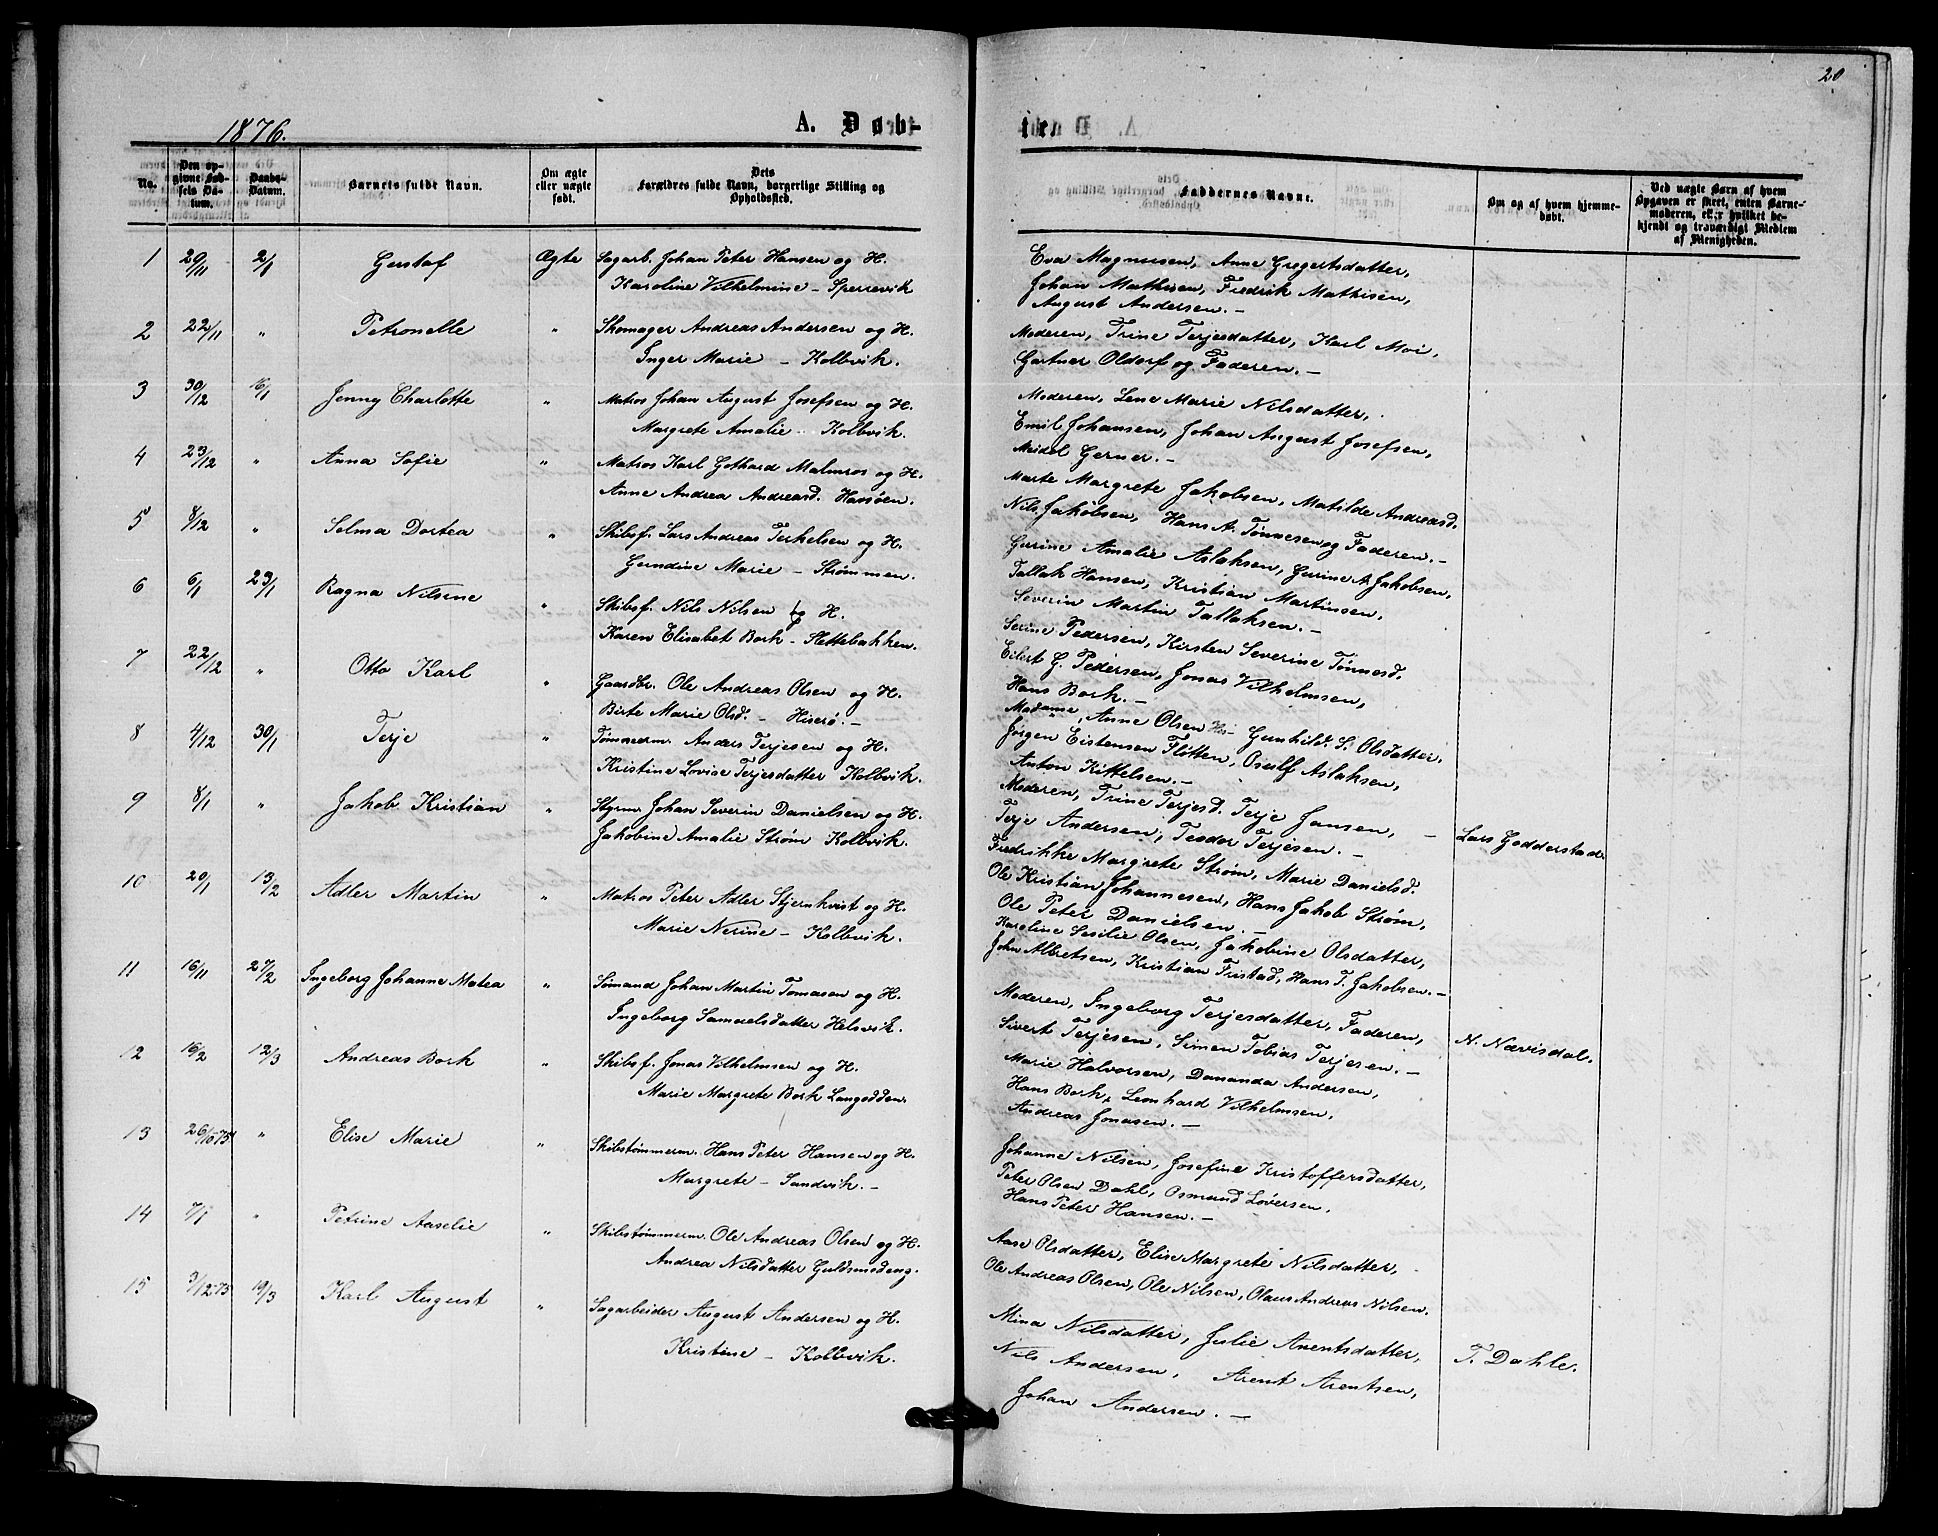 20
1876.
A. Døb-
te.
No.
Den op-
givne Fød-
sels Da-
tum.
Daabs-
Datum.
Barnets fulde Navn.
Om ægte
eller uægte
født.
Dets
Forældres fulde Navn, borgerlige Stilling og
Opholdssted.
Faddernes Navne.
Om og af hvem hjemme-
døbt.
Ved uægte Børn af hvem
Opgaven er skeet, enten Barne-
moderen, eller hvilket be-
kjendt og troværdigt Medlem
af Menigheden.
1 29/11 2/1 Gustaf Ægte Sagarb. Johan Peter Hansen og H.
Karoline Vilhelmine - Sperrevik
Eva Magnusen, Anne Gregertsdatter,
Johan Mathisen, Fredrik Mathisen,
August Andersen. -
2 22/11 " Petronelle " Skomager Andreas Andersen og H.
Inger Marie - Kolbvik.
Moderen, Trine Terjesdatter, Karl Moi,
Gartner Oldorf og Faderen. -
3 30/12 16/1 Jenny Charlotte " Matros Johan August Josefsen og H.
Margrete Amalie - Kolbvik.
Moderen, Lene Marie Nilsdatter,
Emil Johansen, Johan August Josefsen,
Meidel Gerner. -
4 23/12 " Anna Sofie " Matros Karl Gothard Malmros og H.
Anne Andrea Andreasd. Hansøen.
Marte Margrete Jakobsen, Matilde Andreasd.
Nils Jakobsen, Hans A. Tønnesen og Faderen. -
5 8/12 " Selma Dortea " Skibsf. Lars Andreas Terkelsen og H.
Gundine Marie - Strømmen.
Gurine Amalie Aslaksen, Gurine A. Jakobsen,
Tallak Hansen, Kristian Martinsen,
Severin Martin Tallaksen. -
6 6/1 23/1 Ragna Nilsine " Skibsf. Nils Nilsen og H.
Karen Elisabet Bork - Slettebakken.
Serine Pedersen, Kirsten Severine Tønnesd.
Eilert G. Pedersen, Jonas Vilhelmsen,
Hans Bork. -
7 22/12 " Otto Karl " Gaardbr. Ole Andreas Olsen og H.
Birte Marie Olsd. - Hiserø. -
Madame Anne Olsen His - Gunhild S. Olsdatter,
Jørgen Eistensen Fløtten, Osulf Aslaksen,
Anton Kittelsen. -
8 4/12 30/1 Terje " Tømmerm. Anders Terjesen og H.
Kristine Lovise Terjesdatter Kolbvik.
Moderen, Trine Terjesd. Terje Jansen,
Terje Andersen, Teodor Terjesen. -
- Lars Godderstad
9 8/1 " Jakob Kristian " Styrm. Johan Severin Danielsen og H.
Jakobine Amalie Strøm Kolbvik.
Fredrikke Margrete Strøm, Marie Danielsd.
Ole Kristian Johannesen, Hans Jakob Strøm,
Ole Peter Danielsen. -
10 20/1 13/2 Adler Martin " Matros Peter Adler Stjernkvist og H.
Marie Nerine - Kolbvik.
Karoline Sesilie Olsen, Jakobine Olsdatter,
John Albretsen, Kristian Fristad, Hans T. Jakobsen. -
11 16/11 27/2 Ingeborg Johanne Matea " Sømand Johan Martin Tomasen og H.
Ingeborg Samuelsdatter Helsvik.
Moderen, Ingeborg Terjesdatter, Faderen,
Sivert Terjesen, Simen Tobias Terjesen. -
N. Nævisdal.
12 16/2 12/3 Andreas Bork " Skibsf. Jonas Vilhelmsen og H.
Marie Margrete Bork Langodden.
Marie Halvorsen, Dananda Andersen,
Hans Bork, Leonhard Vilhelmsen,
Andreas Jonasen. -
13 26/10-75 " Elise Marie " Skibstømmerm. Hans Peter Hansen og H.
Margrete - Sandvik. -
Johanne Nilsen, Josefine Kristoffersdatter,
Peter Olsen Dahl, Osmund Loversen,
Hans Peter Hansen. -
14 7/1 " Petrine Aaselie " Skibstømmerm. Ole Andreas Olsen og H.
Andrea Nilsdatter Guldsmedeng.
Aase Olsdatter, Elise Margrete Nilsdatter,
Ole Andreas Olsen, Ole Nilsen, Olaus Andreas Nilsen.
15 3/12-75 19/3 Karl August " Sagarbeider August Andersen og H.
Kristine - Kolbvik.
Mina Nilsdatter, Julie Anentsdatter,
Nils Andersen, Arent Arentsen,
Johan Andersen. -
T. Dahle.